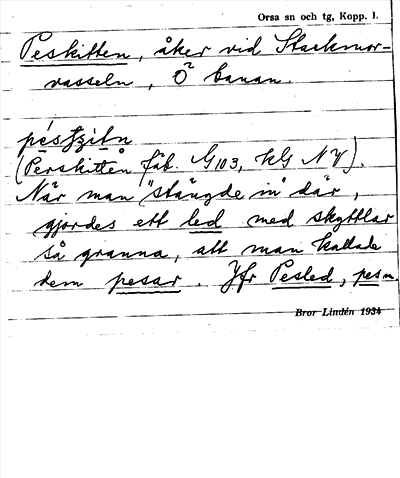 Orsa sn och tg, Kopp. l.
Peskitten, åker vid Stackmor-
vasseln, Ö banan.
(Perskitten fäb. G103, kG NV).
När man "stängde in" där,
gjordes ett led med skyttlar
så granna, att man kallade
dem pesar. Jfr Pesled, pes m.
Bror Lindén 1934